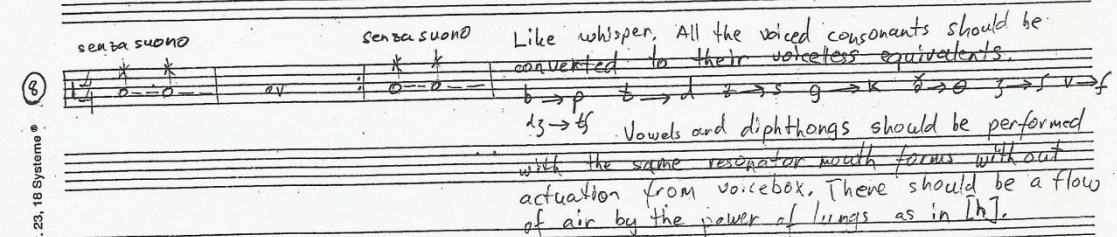 senza suono
senza suono
Like whisper. All the voiced consonants should be
converted to their voiceless equivalents.
8
4
4
b → p t → d z → s g → k ð → θ ʒ → ʃ v → f
dʒ → tʃ
Vowels and diphthongs should be performed
with the same resonator mouth forms without
actuation from voicebox. There should be a flow
of air by the power of lungs as in [h].
. 23, 18 Systeme ®